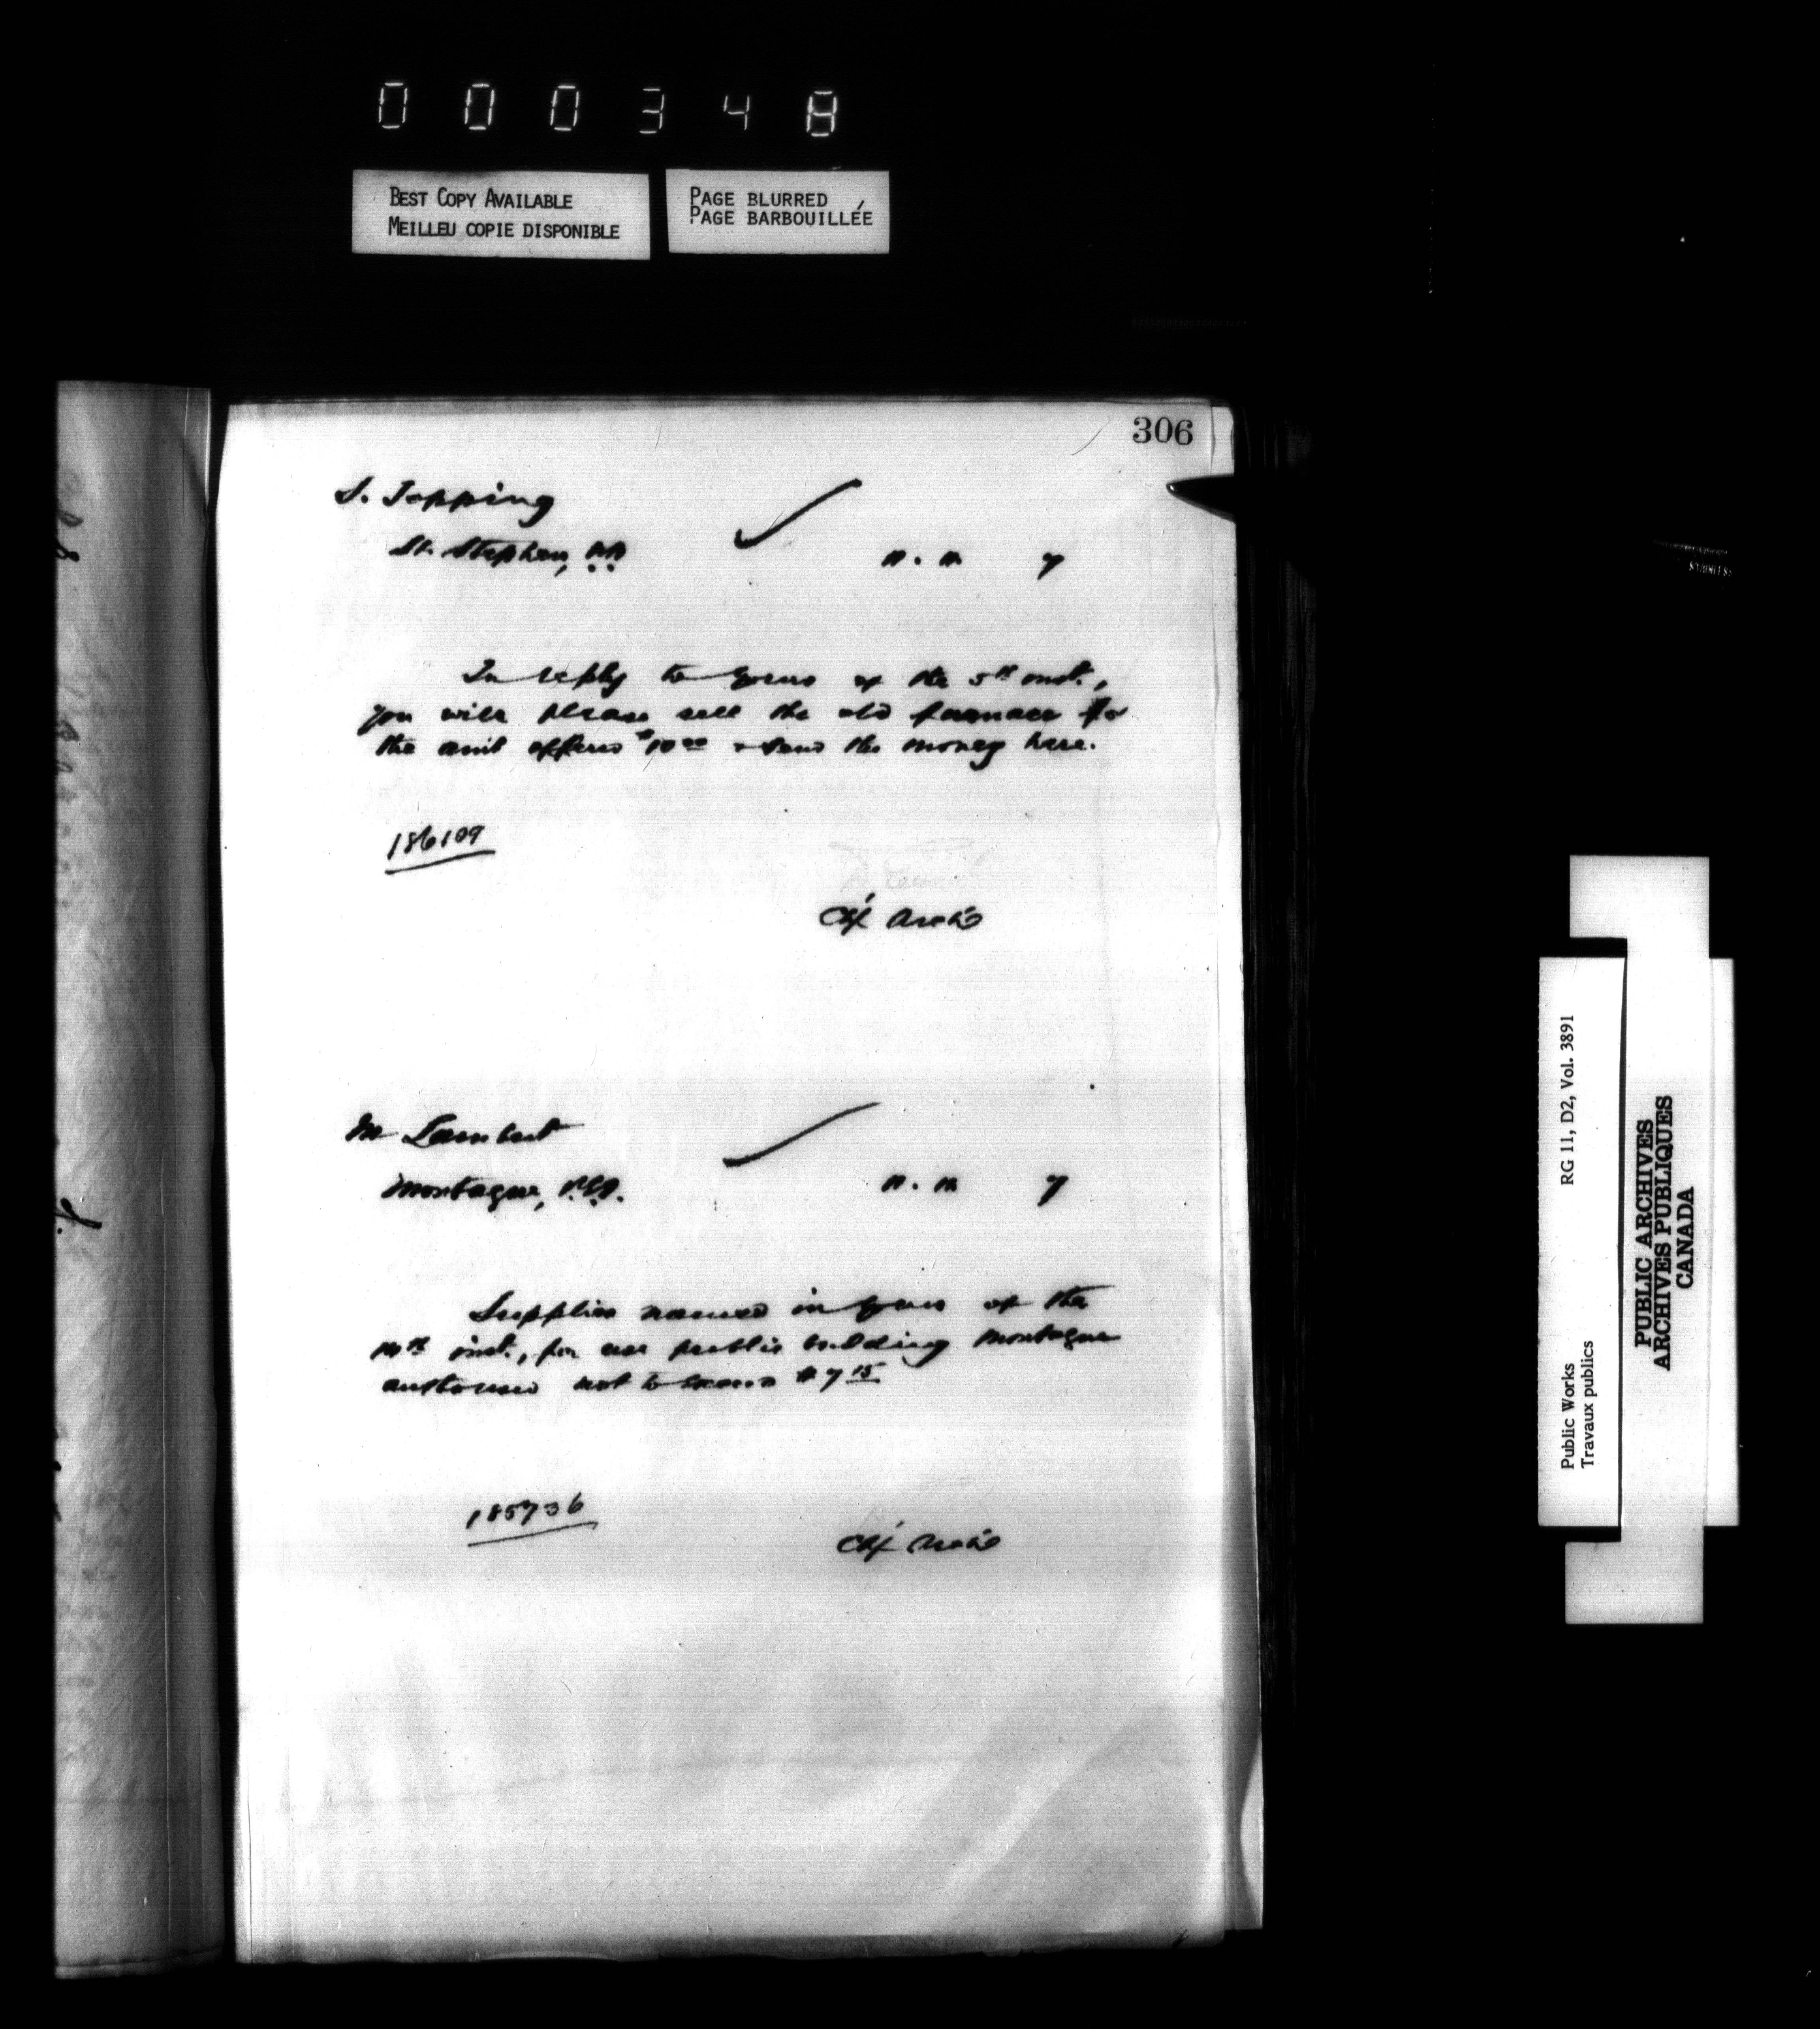 000348
BEST COPY AVAILABLE
MEILLEU COPIE DISPONIBLE
PAGE BLURRED
PAGE BARBOUILLÉE
306
S. Topping
St. Stephen, N.B.
7
In reply to yours of the 5th inst.,
you will please sell the old furnace for
the amt offered $10 00 & send the money here.
186109
Chf Archt
M Lambert
Montague, P.E.I.
7
Supplies named in yours of the
inst., for use public building Montague
authorised not to exceed $7 15
185736
Chf Archt
Public Works RG 11, D2, Vol. 3891
Travaux publics
PUBLIC ARCHIVES
ARCHIVES PUBLIQUES
CANADA